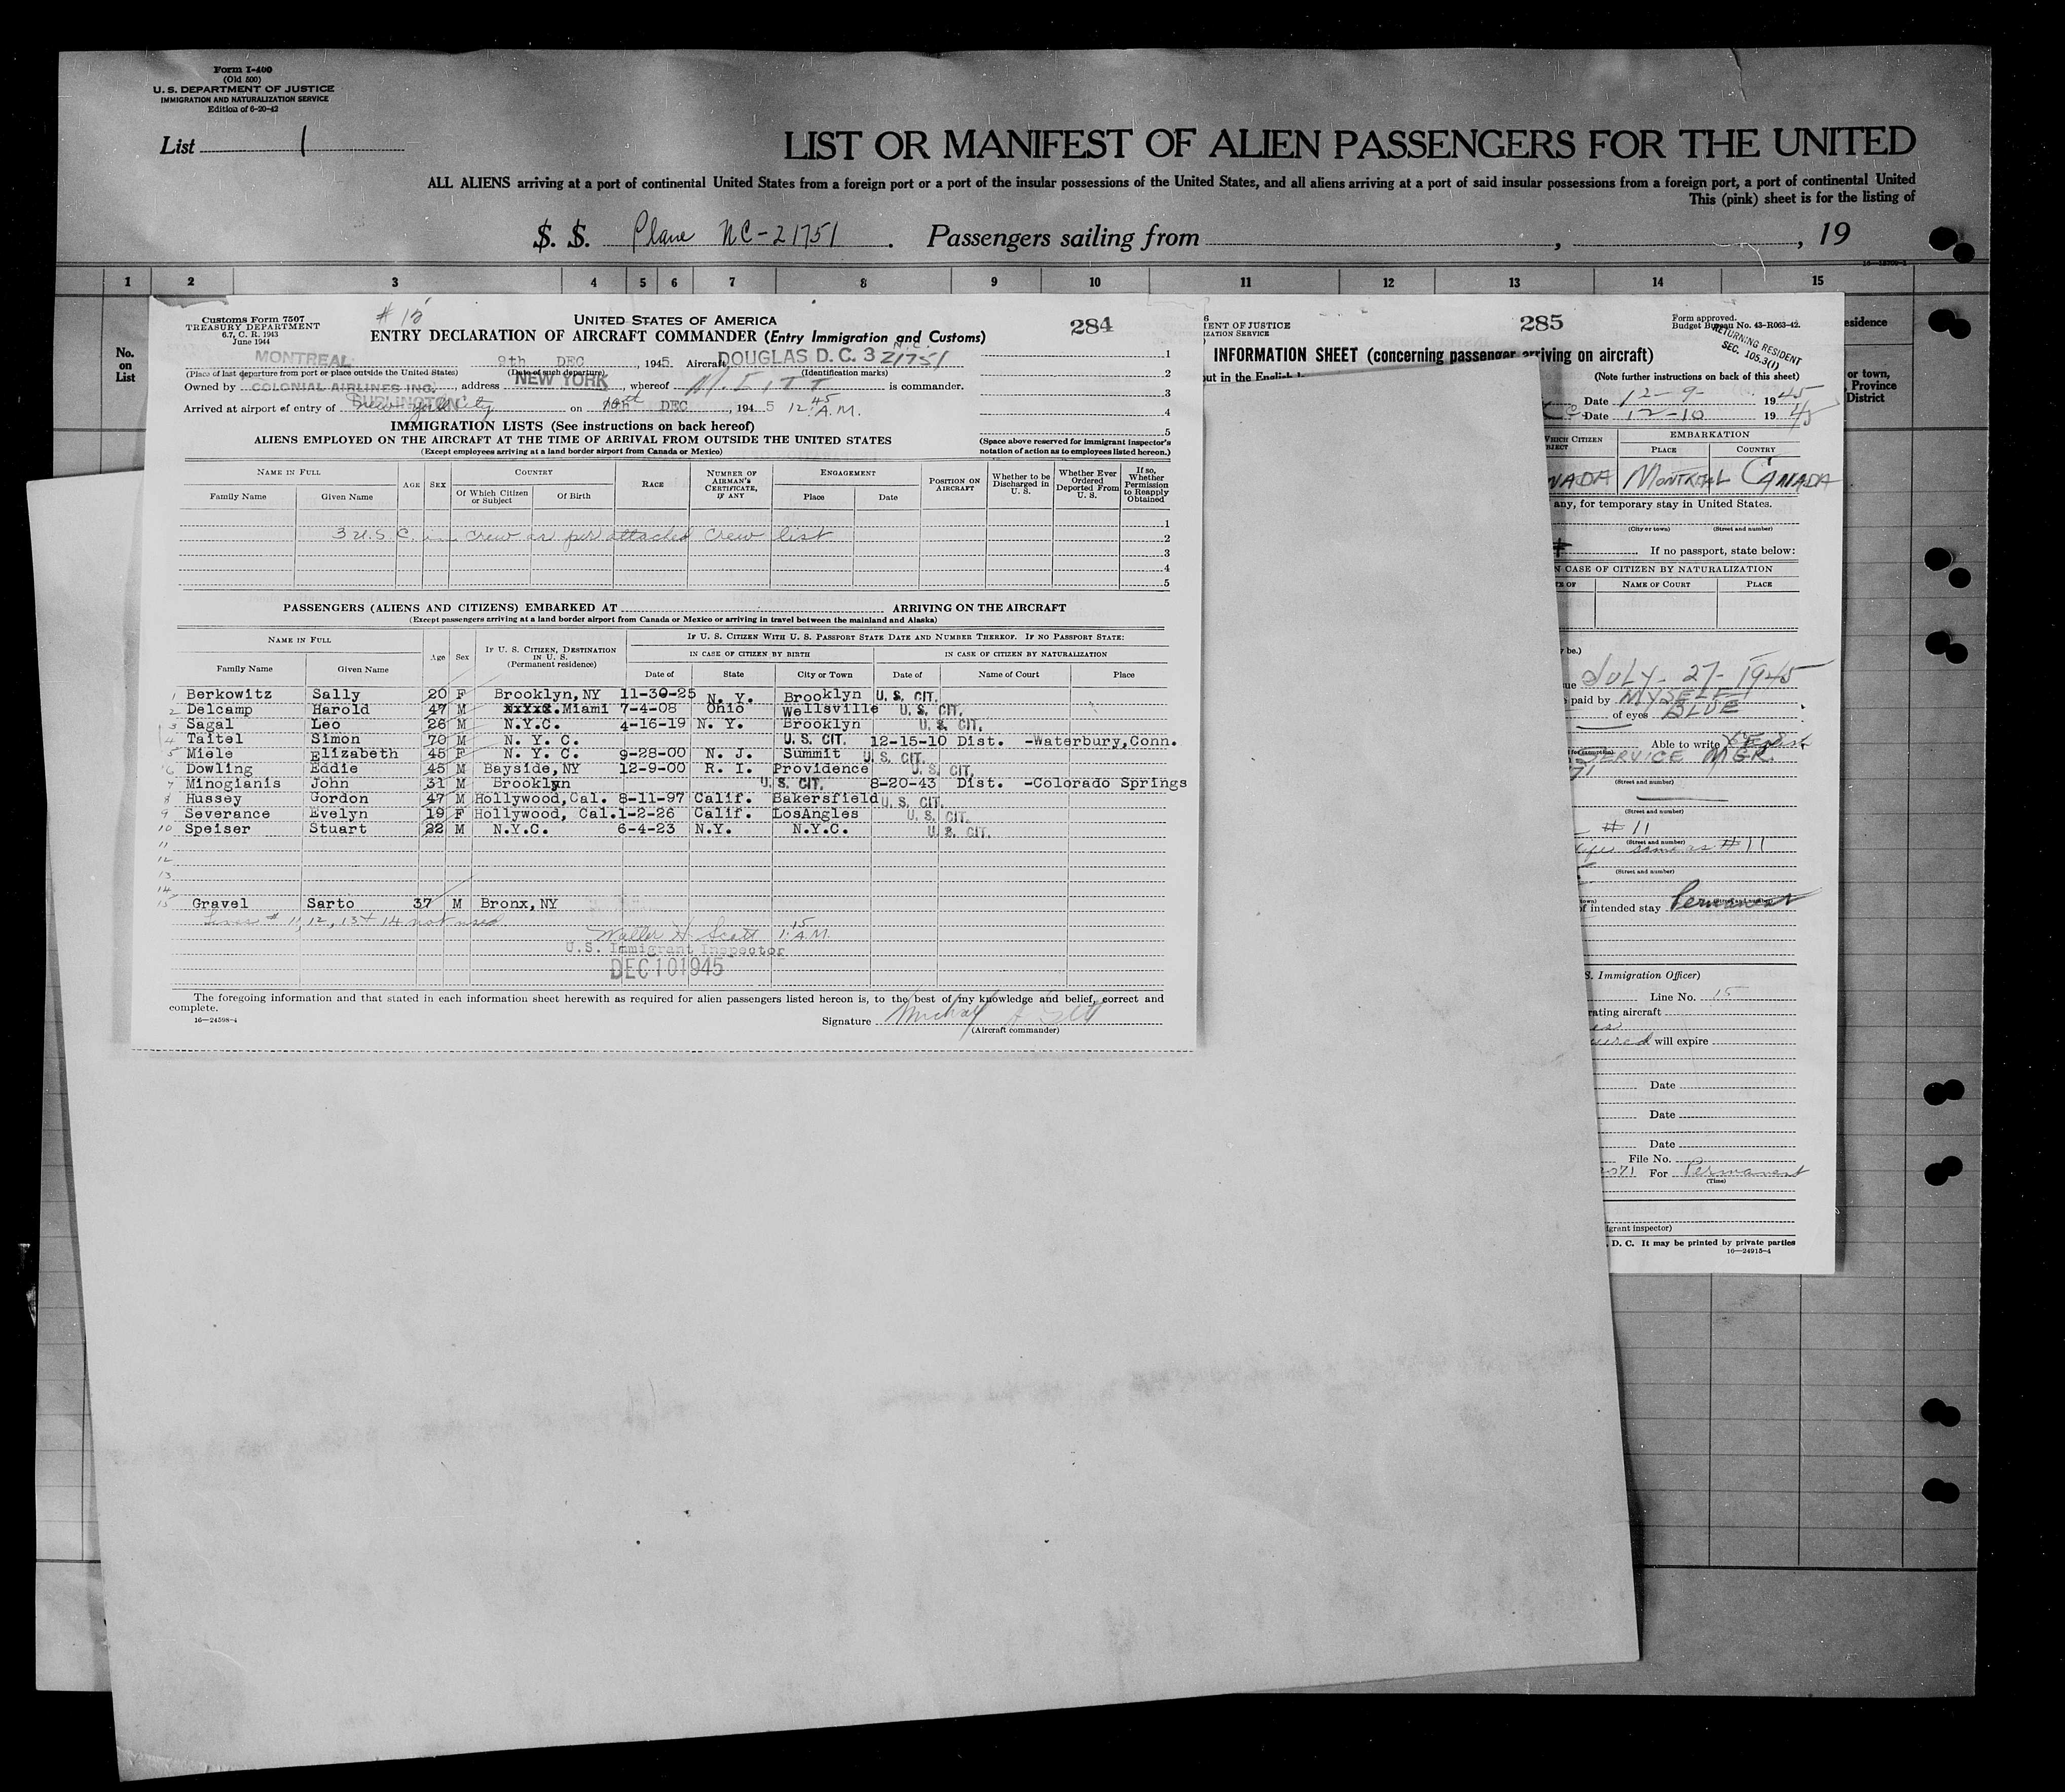 Form I-400
(Old 500)
U. S. DEPARTMENT OF JUSTICE
IMMIGRATION AND NATURALIZATION SERVICE
Edition of 6-20-42
List 1
LIST OR MANIFEST OF ALIEN PASSENGERS FOR THE UNITED
ALL ALIENS arriving at a port of continental United States from a foreign port or a port of the insular possessions of the United States, and all aliens arriving at a port of said insular possessions from a foreign port, a port of continental United
This (pink) sheet is for the listing of
S. S. Plane NC-21751. Passengers sailing from , , 19
1 2 3 4 5 6 7 8 9 10 11 12 13 14 15
No. on List
Customs Form 7507
TREASURY DEPARTMENT
6.7, C. R. 1943
June 1944
# 15
UNITED STATES OF AMERICA
284
ENTRY DECLARATION OF AIRCRAFT COMMANDER (Entry Immigration and Customs)
MONTREAL 9th DEC , 1945 Aircraft DOUGLAS D. C. 3 N.C. 21751
(Place of last departure from port or place outside the United States) (Date of such departure) (Identification marks)
Owned by COLONIAL AIRLINES INC. , address NEW YORK , whereof is commander.
Arrived at airport of entry of BURLINGTON New York City on 10th DEC , 1945 12:45 A.M.
1
2
3
4
5
IMMIGRATION LISTS (See instructions on back hereof)
ALIENS EMPLOYED ON THE AIRCRAFT AT THE TIME OF ARRIVAL FROM OUTSIDE THE UNITED STATES
(Except employees arriving at a land border airport from Canada or Mexico)
(Space above reserved for immigrant inspector's notation of action as to employees listed hereon.)
NAME IN FULL AGE SEX COUNTRY RACE NUMBER OF AIRMAN'S CERTIFICATE, IF ANY ENGAGEMENT POSITION ON AIRCRAFT Whether to be Discharged in U. S. Whether Ever Ordered Deported From U. S. If so, Whether Permission to Reapply Obtained
Family Name Given Name Of Which Citizen or Subject Of Birth Place Date
1
3 U.S.C. in crew as per attached crew list 2
3
4
5
PASSENGERS (ALIENS AND CITIZENS) EMBARKED AT ARRIVING ON THE AIRCRAFT
(Except passengers arriving at a land border airport from Canada or Mexico or arriving in travel between the mainland and Alaska)
NAME IN FULL Age Sex IF U. S. CITIZEN, DESTINATION IN U. S. (Permanent residence) IF U. S. CITIZEN WITH U. S. PASSPORT STATE DATE AND NUMBER THEREOF. IF NO PASSPORT STATE:
IN CASE OF CITIZEN BY BIRTH IN CASE OF CITIZEN BY NATURALIZATION
Family Name Given Name Date of State City or Town Date of Name of Court Place
1 Berkowitz Sally 20 F Brooklyn, NY 11-30-25 N. Y. Brooklyn U. S. CIT.
2 Delcamp Harold 47 M Miami 7-4-08 Ohio Wellsville U. S. CIT.
3 Sagal Leo 26 M N.Y.C. 4-16-19 N. Y. Brooklyn U. S. CIT.
4 Taitel Simon 70 M N. Y. C. U. S. CIT. 12-15-10 Dist. -Waterbury,Conn.
5 Miele Elizabeth 45 F N. Y. C. 9-28-00 N. J. Summit U. S. CIT.
6 Dowling Eddie 45 M Bayside,NY 12-9-00 R. I. Providence U. S. CIT.
7 Minogianis John 31 M Brooklyn U. S. CIT. 8-20-43 Dist. -Colorado Springs
8 Hussey Gordon 47 M Hollywood,Cal. 8-11-97 Calif. Bakersfield U. S. CIT.
9 Severance Evelyn 19 F Hollywood, Cal. 1-2-26 Calif. LosAngles U. S. CIT.
10 Speiser Stuart 22 M N.Y.C. 6-4-23 N.Y. N.Y.C. U. S. CIT.
11
12
13
14
15 Gravel Sarto 37 M Bronx, NY
Lines # 11, 12, 13 + 14 not used
Walter H. Scott 1:15 A.M.
U.S. Immigrant Inspector
DEC 10 1945
The foregoing information and that stated in each information sheet herewith as required for alien passengers listed hereon is, to the best of my knowledge and belief, correct and complete.
16—24598-4
Signature
(Aircraft commander)
285
Form approved.
Budget Bureau No. 43-R063-42.
RETURNING RESIDENT
SEC. 105.3(1)
MENT OF JUSTICE
IZATION SERVICE
INFORMATION SHEET (concerning passenger arriving on aircraft)
(Note further instructions on back of this sheet)
Date 12-9- 1945
Date 12-10 1945
WHICH CITIZEN EMBARKATION
PLACE COUNTRY
NADA MONTREAL CANADA
any, for temporary stay in United States.
(City or town) (Street and number)
If no passport, state below:
N CASE OF CITIZEN BY NATURALIZATION
NAME OF COURT PLACE
JULY - 27 - 1945
paid by MYSELF
of eyes BLUE
Able to write
SERVICE MGR.
(Street and number)
(Street and number)
# 11
(Street and number)
same as # 11
(Street and number)
of intended stay Permanent
S. Immigration Officer)
Line No. 15
rating aircraft
will expire
Date
Date
Date
File No.
071 For Permanent
(Time)
grant inspector)
D. C. It may be printed by private parties
16—24915-4
esidence
or town,
Province
District